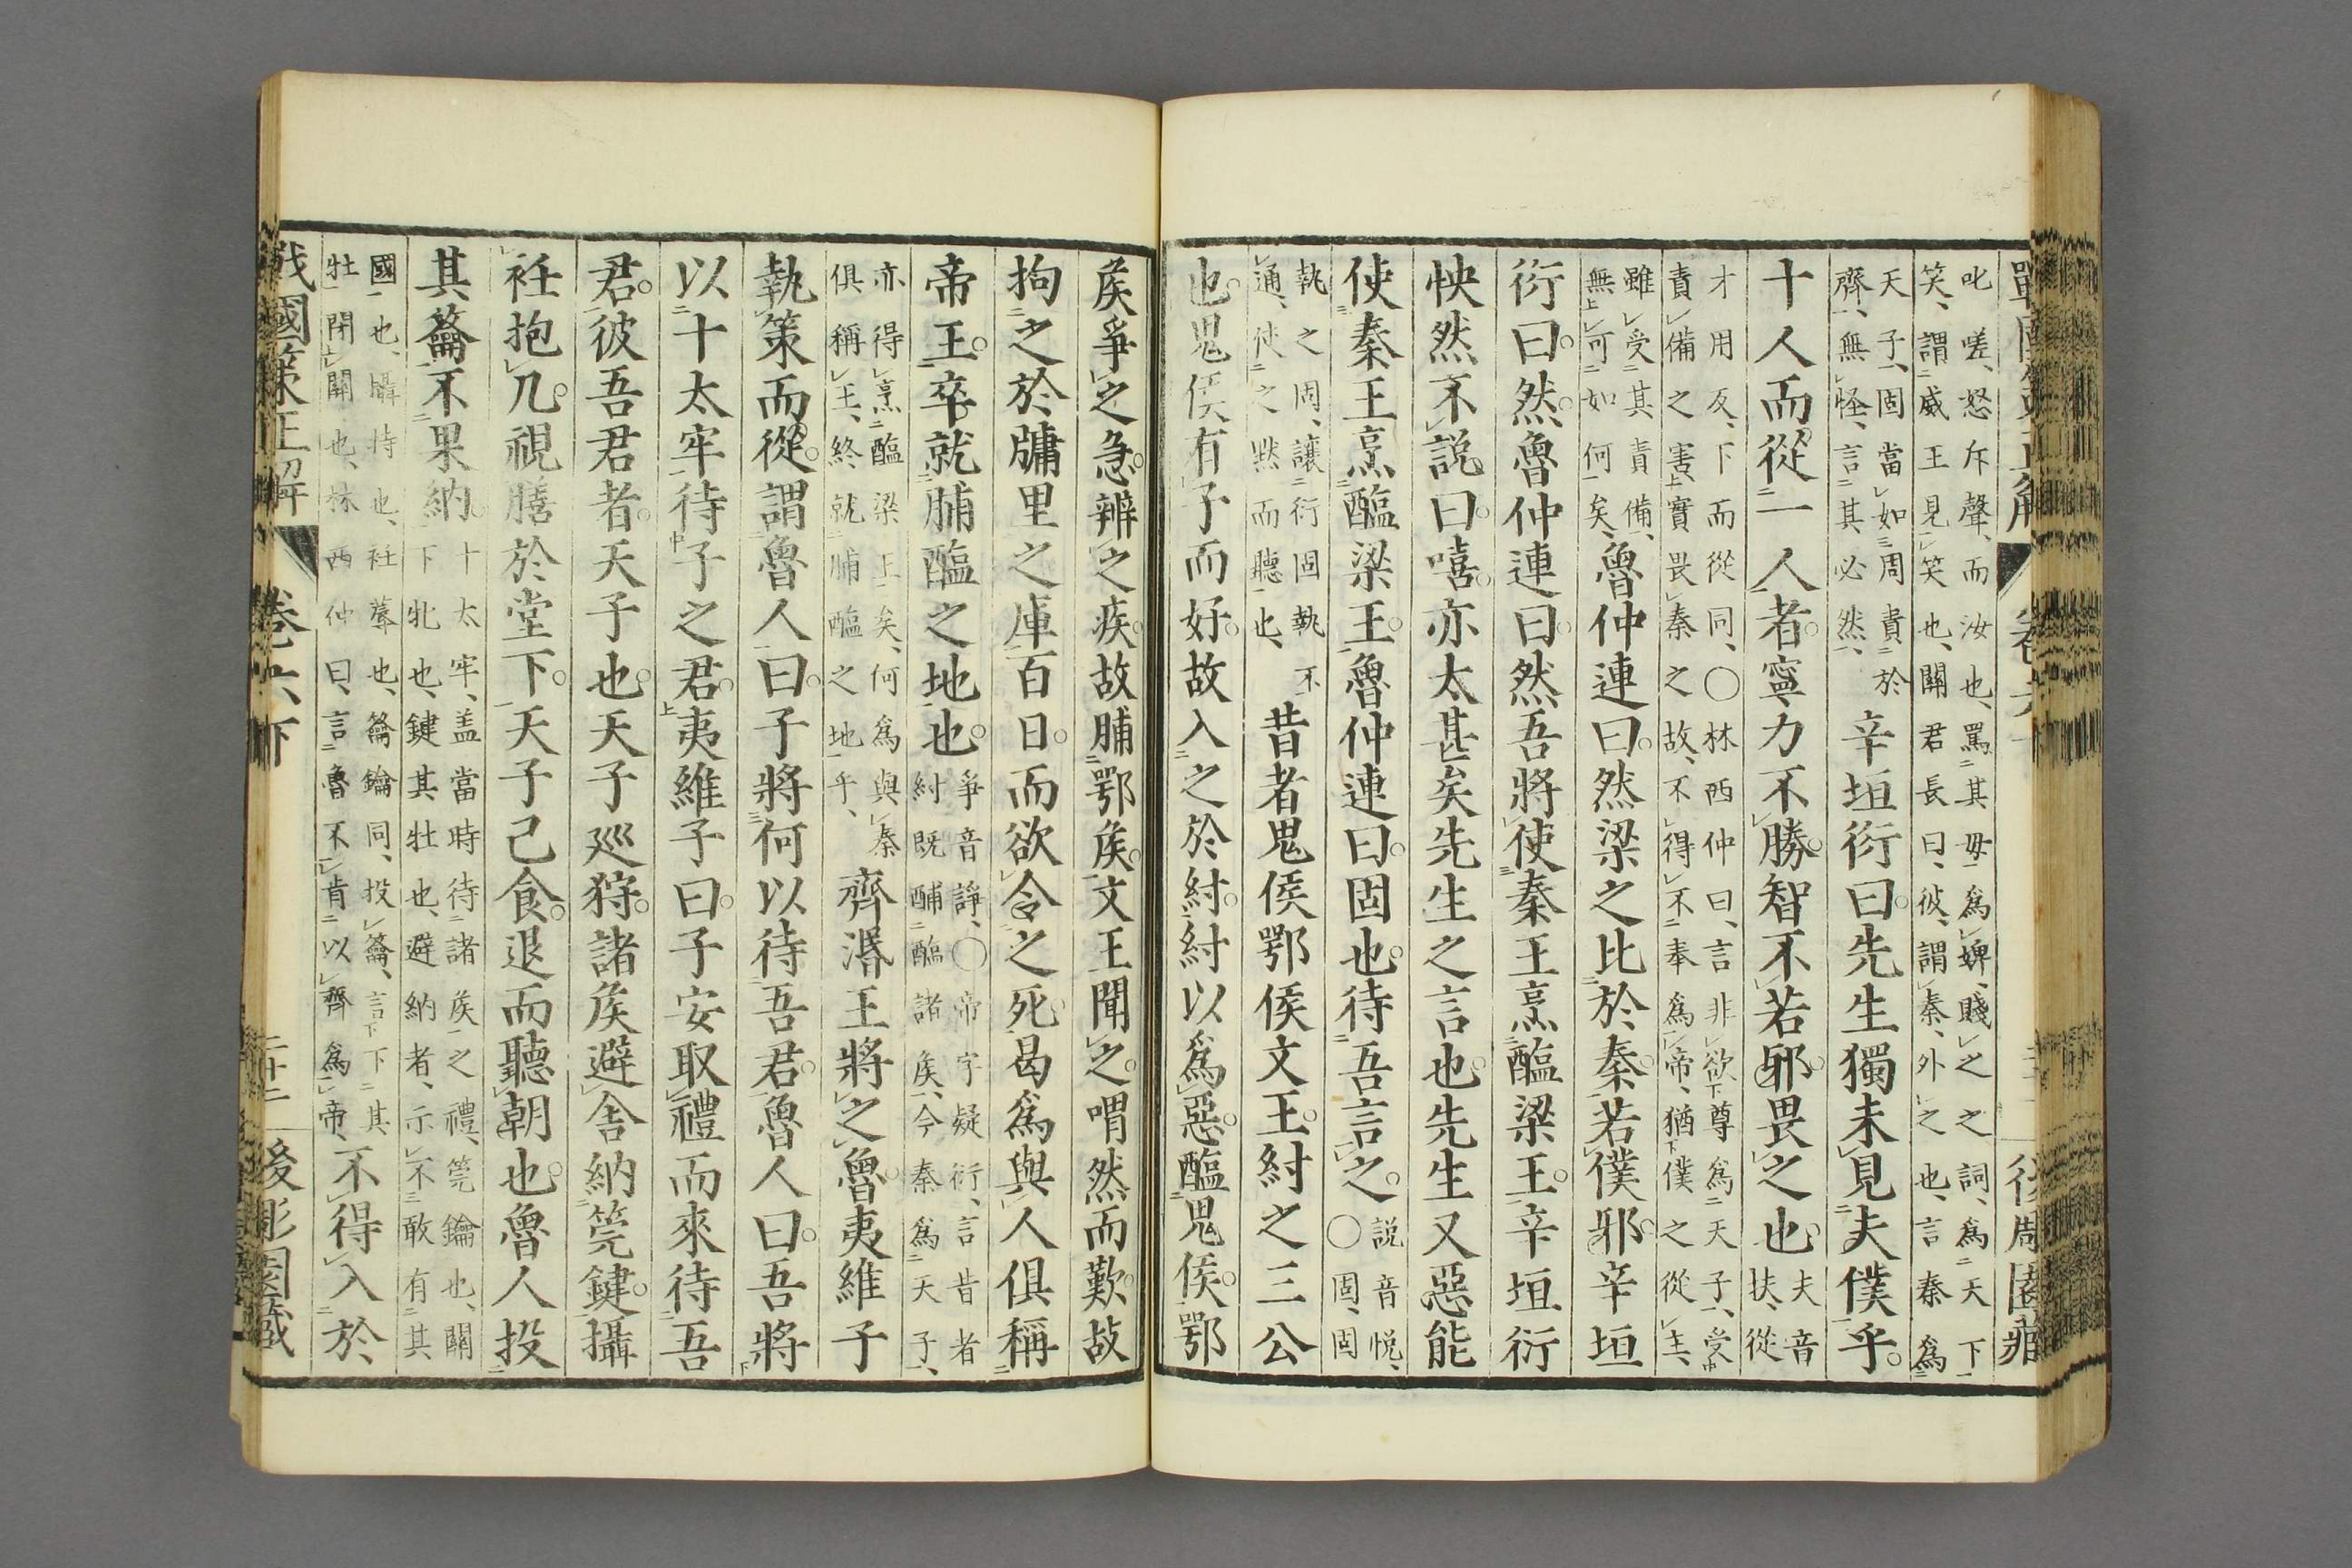 戰國策正解　卷六下　後彫園藏
叱嗟、怒斥聲、而汝也、罵其母爲婢、賤之之詞、爲天下
笑、謂威王見笑也、關君長曰、彼、謂秦、外之也、言秦爲
天子、固當如周責於
齊、無怪、言其必然、
辛垣衍曰。先生獨未見夫僕乎。
十人而從一人者。寧力不勝。智不若邪。畏之也。夫音
扶、從
才用反、下而從同、○林西仲曰、言非欲尊爲天子、受
責備之害、實畏秦之故、不得不奉爲帝、猶僕之從主、
雖受其責備、
無可如何矣、
魯仲連曰。然梁之比於秦。若僕邪。辛垣
衍曰。然。魯仲連曰。然吾將使秦王烹醢梁王。辛垣衍
怏然不説曰。嘻。亦太甚矣先生之言也。先生又惡能
使秦王烹醢梁王。魯仲連曰。固也。待吾言之。説音悦、
○固、固
執之固、讓衍固執不
通、使之黙而聽也、
昔者鬼侯鄂侯文王。紂之三公
也。鬼侯有子而好。故入之於紂。紂以爲惡。醢鬼侯。鄂
矦爭之急。辨之疾。故脯鄂矦。文王聞之。喟然而歎。故
拘之於牖里之庫百日。而欲令之死。曷爲與人俱稱
帝王。卒就脯醢之地也。爭音諍、○帝字疑衍、言昔者
紂既酺醢諸矦、今秦爲天子、
亦得烹醢梁王矣、何爲與秦
俱稱王、終就脯醢之地乎、
齊湣王將之魯。夷維子
執策而從。謂魯人曰。子將何以待吾君。魯人曰。吾將
以十太牢待子之君。夷維子曰。子安取禮而來待吾
君。彼吾君者。天子也。天子巡狩。諸矦避舍納筦鍵。攝
衽抱几。視膳於堂下。天子已食。退而聽朝也。魯人投
其籥不果納。十太牢、盖當時待諸矦之禮、筦鑰也、關
下牝也、鍵其牡也、避納者、示不敢有其
國也、攝持也、衽蓐也、籥鑰同、投籥、言下其
牡閉關也、林西仲曰、言魯不肯以齊爲帝、
不得入於
戰國策正解　卷六下　二十二　後彫園藏